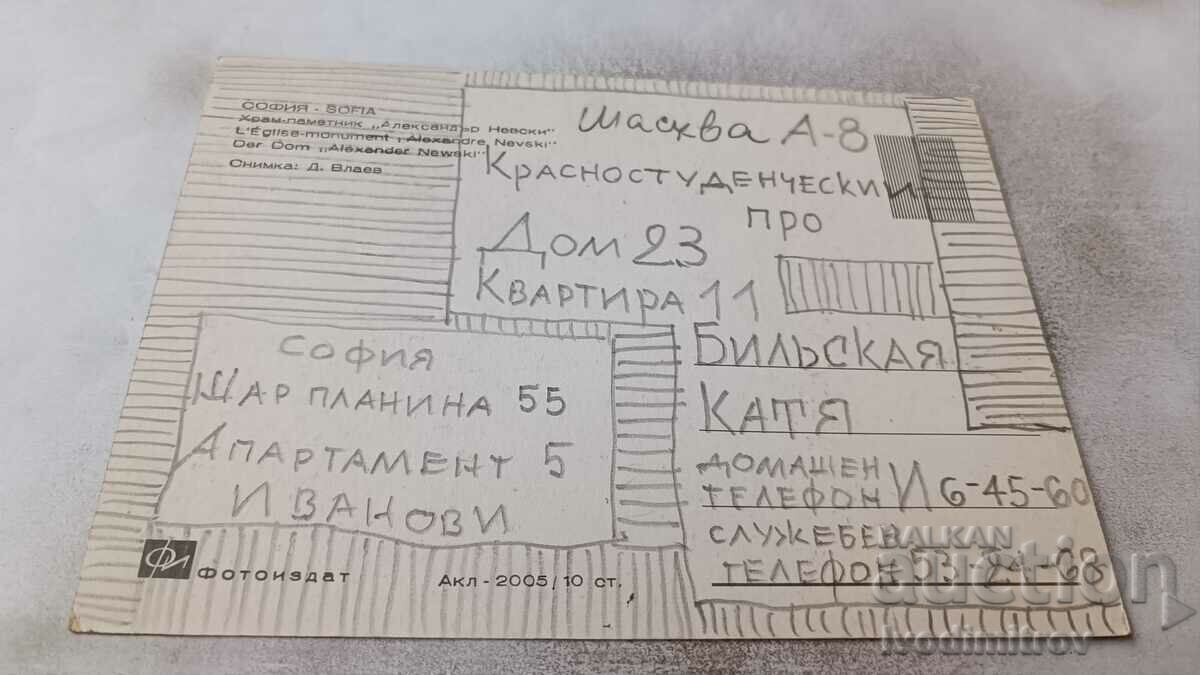 СОФИЯ - SOFIA
Храм-паметник „Александър Невски"
L'Église-monument „Alexandre Nevski"
Der Dom „Alexander Newski"
Снимка: Д. Влаев
Масква А-8
Красностуденчески
про
Дом 23
Квартира 11
Бильская
Катя
домашен
телефон И 6-45-60
служебен
телефон 53-24-68
София
Шар планина 55
Апартамент 5
Иванови
ФИ Фотоиздат
Акл - 2005/10 ст.
BALKAN
auction
ivodimitrov